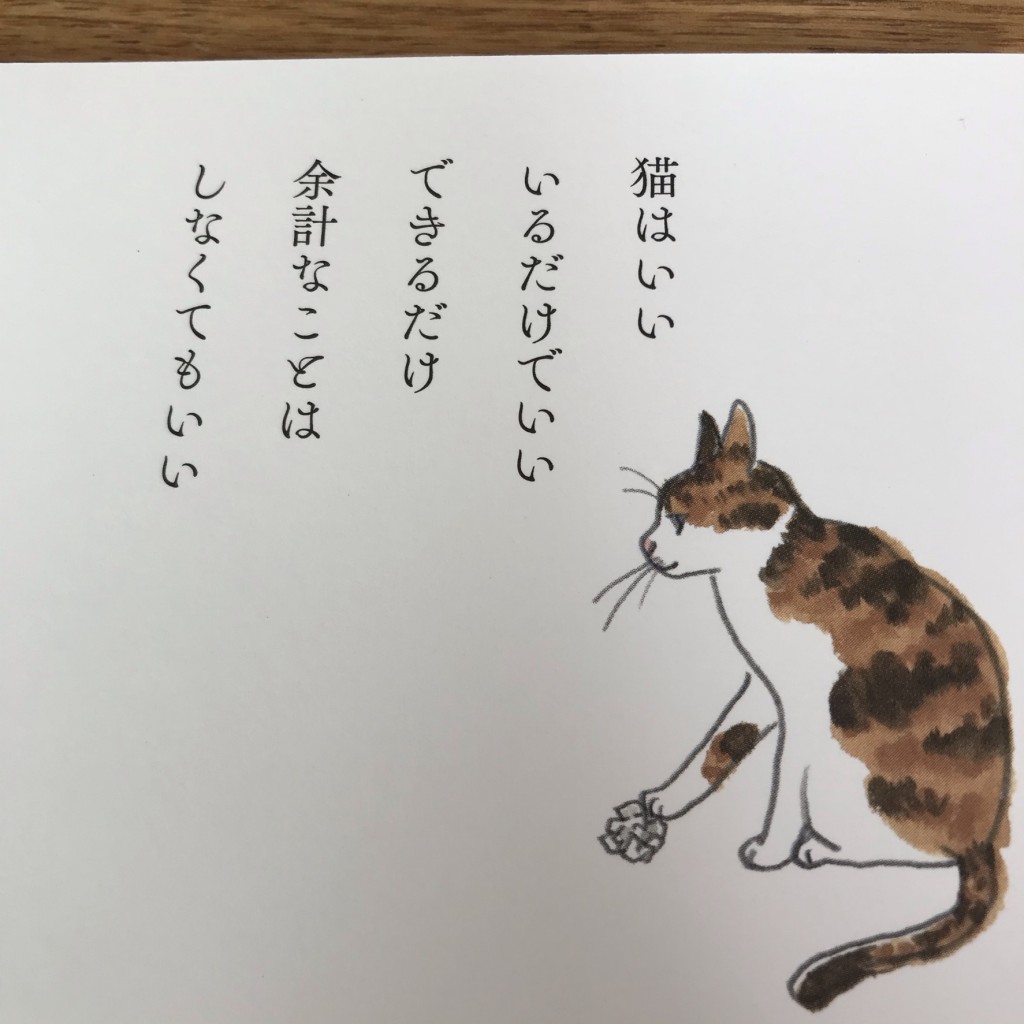 猫はいい
いるだけでいい
できるだけ
余計なことは
しなくてもいい